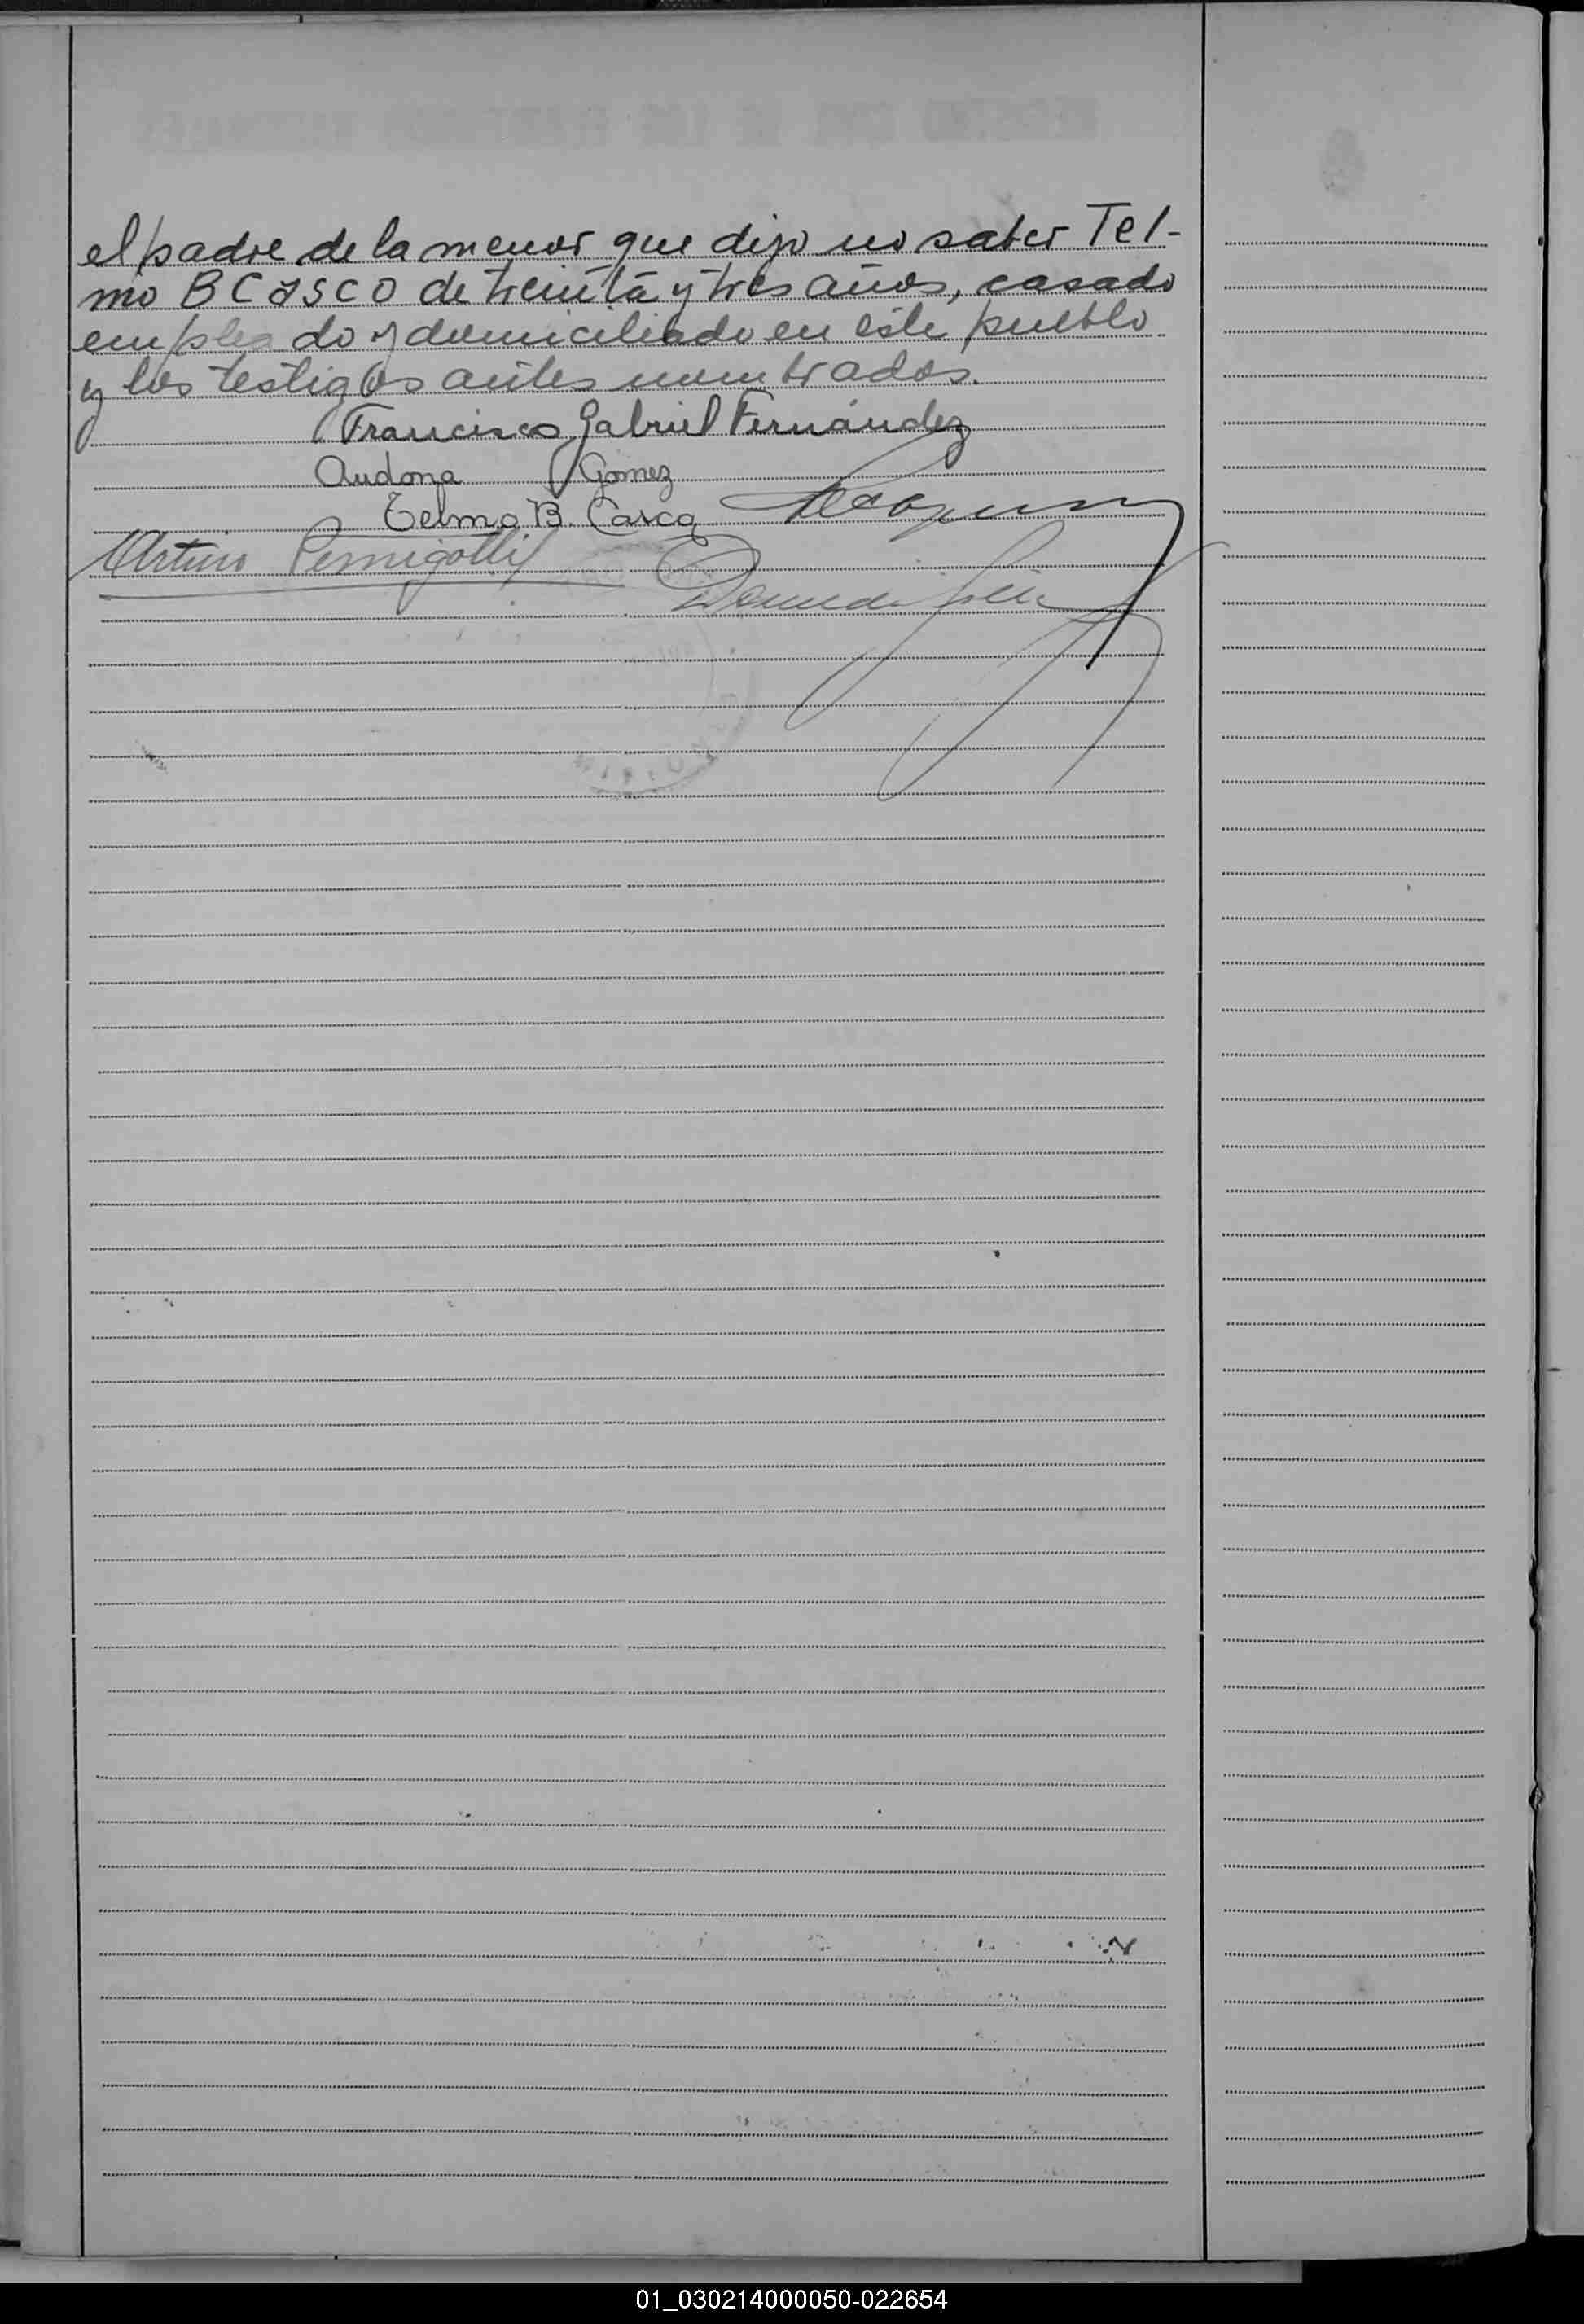 el padre de la menor que dijo no saber Tel-
mo B CASCO de treinta y tres años, casado
empleado y domiciliado en este pueblo
y los testigos antes nombrados.
Francisco Gabriel Fernández
Audona Gomez
Telmo B. Casco
Arturo Pernigotti
01_030214000050-022654